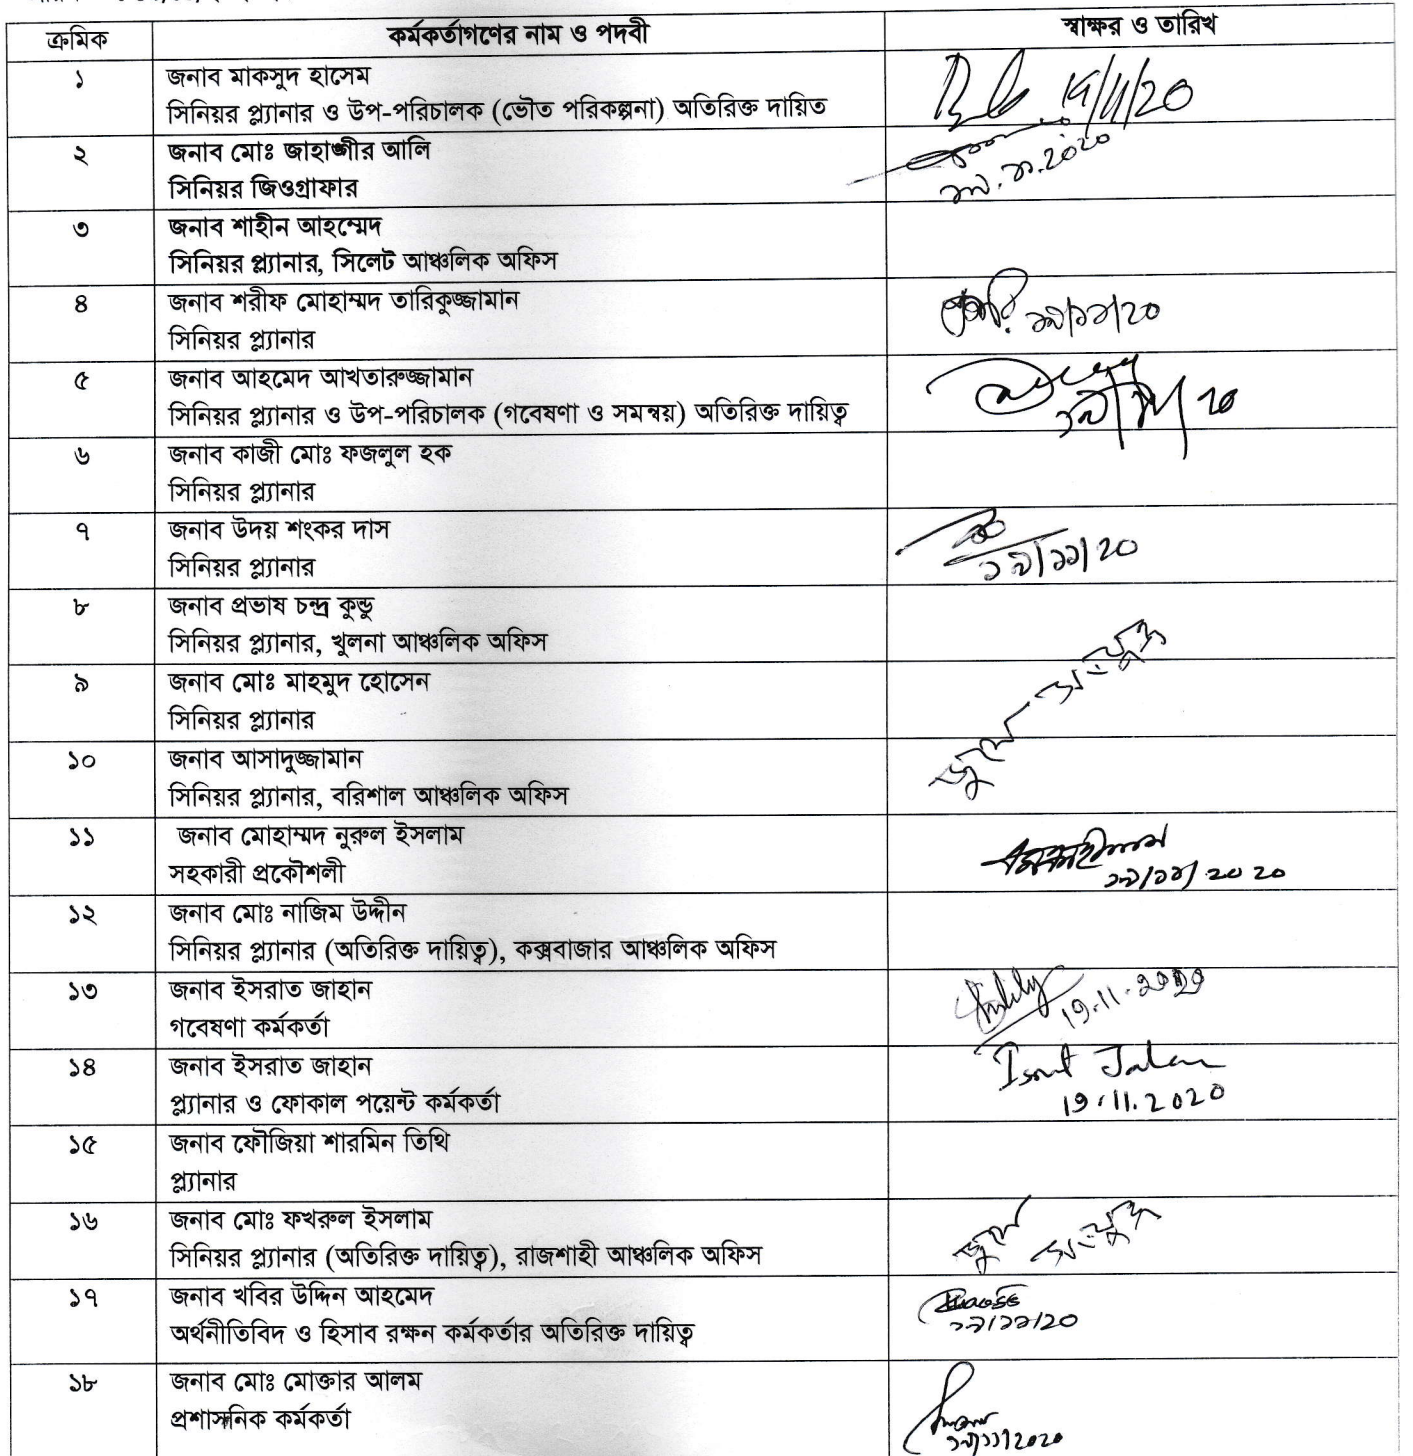 ক্রমিক কর্মকর্তাগণের নাম ও পদবী স্বাক্ষর ও তারিখ
১ জনাব মাকসুদ হাসেম
সিনিয়র প্ল্যানার ও উপ-পরিচালক (ভৌত পরিকল্পনা) অতিরিক্ত দায়িত 19/11/20
২ জনাব মোঃ জাহাঙ্গীর আলি
সিনিয়র জিওগ্রাফার
৩ জনাব শাহীন আহম্মেদ
সিনিয়র প্ল্যানার, সিলেট আঞ্চলিক অফিস
৪ জনাব শরীফ মোহাম্মদ তারিকুজ্জামান
সিনিয়র প্ল্যানার ১৯/১১/২০
৫ জনাব আহমেদ আখতারুজ্জামান
সিনিয়র প্ল্যানার ও উপ-পরিচালক (গবেষণা ও সমন্বয়) অতিরিক্ত দায়িত্ব ১৯/১১/২০
৬ জনাব কাজী মোঃ ফজলুল হক
সিনিয়র প্ল্যানার
৭ জনাব উদয় শংকর দাস
সিনিয়র প্ল্যানার ১৯/১১/২০
৮ জনাব প্রভাষ চন্দ্র কুন্ডু
সিনিয়র প্ল্যানার, খুলনা আঞ্চলিক অফিস
৯ জনাব মোঃ মাহমুদ হোসেন
সিনিয়র প্ল্যানার জুমে সংযুক্ত
১০ জনাব আসাদুজ্জামান
সিনিয়র প্ল্যানার, বরিশাল আঞ্চলিক অফিস
১১ জনাব মোহাম্মদ নুরুল ইসলাম
সহকারী প্রকৌশলী ১৯/১১/২০২০
১২ জনাব মোঃ নাজিম উদ্দীন
সিনিয়র প্ল্যানার (অতিরিক্ত দায়িত্ব), কক্সবাজার আঞ্চলিক অফিস
১৩ জনাব ইসরাত জাহান
গবেষণা কর্মকর্তা 19.11.2020
১৪ জনাব ইসরাত জাহান Israt Jahan
প্ল্যানার ও ফোকাল পয়েন্ট কর্মকর্তা 19.11.2020
১৫ জনাব ফৌজিয়া শারমিন তিথি
প্ল্যানার
১৬ জনাব মোঃ ফখরুল ইসলাম
সিনিয়র প্ল্যানার (অতিরিক্ত দায়িত্ব), রাজশাহী আঞ্চলিক অফিস জুমে সংযুক্ত
১৭ জনাব খবির উদ্দিন আহমেদ
অর্থনীতিবিদ ও হিসাব রক্ষন কর্মকর্তার অতিরিক্ত দায়িত্ব ১৯/১১/২০
১৮ জনাব মোঃ মোক্তার আলম
প্রশাসনিক কর্মকর্তা ১৯/১১/২০২০